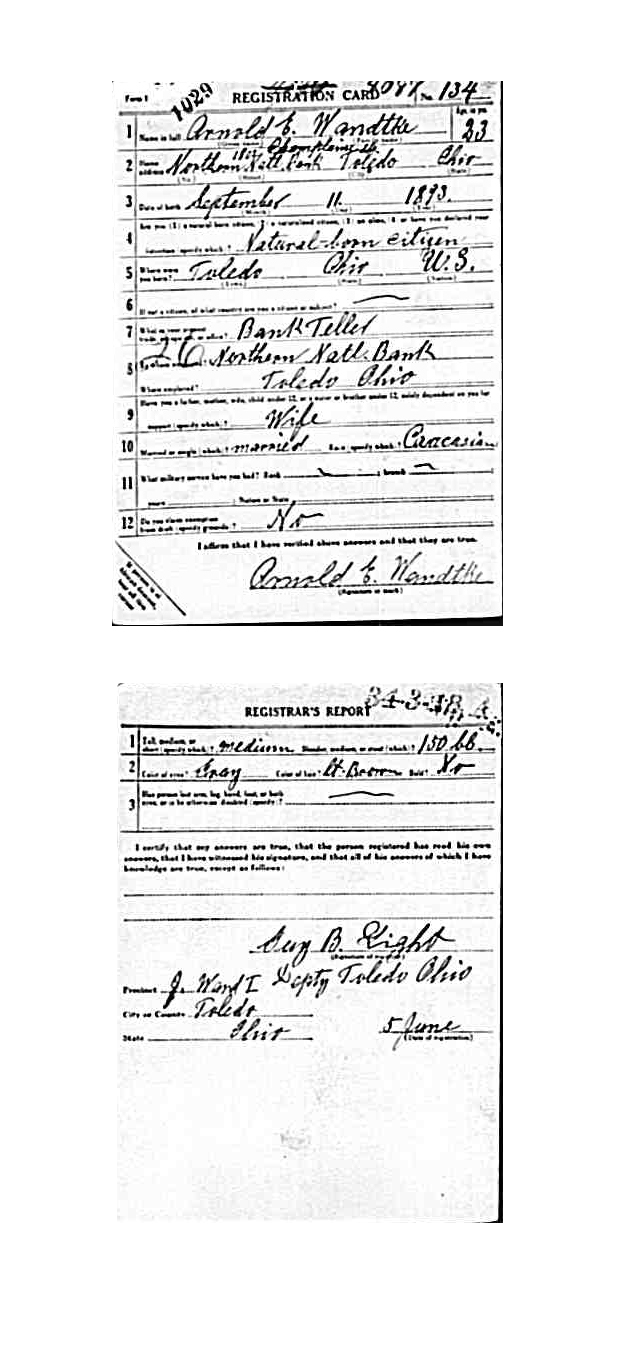 Form 1 1029 REGISTRATION CARD No. 134
Age, in yrs.
1 Name in full Arnold E. Wandtke 23
(Given name) (Family name)
1801 Champlain St.
2 Home address Northern Natl. Bank Toledo Ohio
(No.) (Street) (City) (State)
3 Date of birth September 11 1893.
(Month) (Day) (Year)
4 Are you (1) a natural born citizen, (2) a naturalized citizen, (3) an alien, (4) or have you declared your
intention (specify which)? Natural-born citizen
5 Where were you born? Toledo Ohio U.S.
(Town) (State) (Nation)
6 If not a citizen, of what country are you a citizen or subject?
7 What is your present trade, occupation, or office? Bank Teller
8 By whom employed? Northern Natl. Bank
Where employed? Toledo Ohio
9 Have you a father, mother, wife, child under 12, or a sister or brother under 12, solely dependent on you for
support (specify which)? Wife
10 Married or single (which)? married Race (specify which)? Caucasian
11 What military service have you had? Rank ; branch
years ; Nation or State
12 Do you claim exemption from draft (specify grounds)? No
I affirm that I have verified above answers and that they are true.
Arnold E. Wandtke
(Signature or mark)
34-3-18 A.
REGISTRAR'S REPORT
1 Tall, medium, or short (specify which)? medium Slender, medium, or stout (which)? 150 lb.
2 Color of eyes? Gray Color of hair? Lt. Brown Bald? No
3 Has person lost arm, leg, hand, foot, or both
eyes, or is he otherwise disabled (specify)?
I certify that my answers are true, that the person registered has read his own
answers, that I have witnessed his signature, and that all of his answers of which I have
knowledge are true, except as follows:
Guy B. Light
(Signature of registrar)
Precinct J. Ward I Depty Toledo Ohio
City or County Toledo
State Ohio 5 June
(Date of registration)